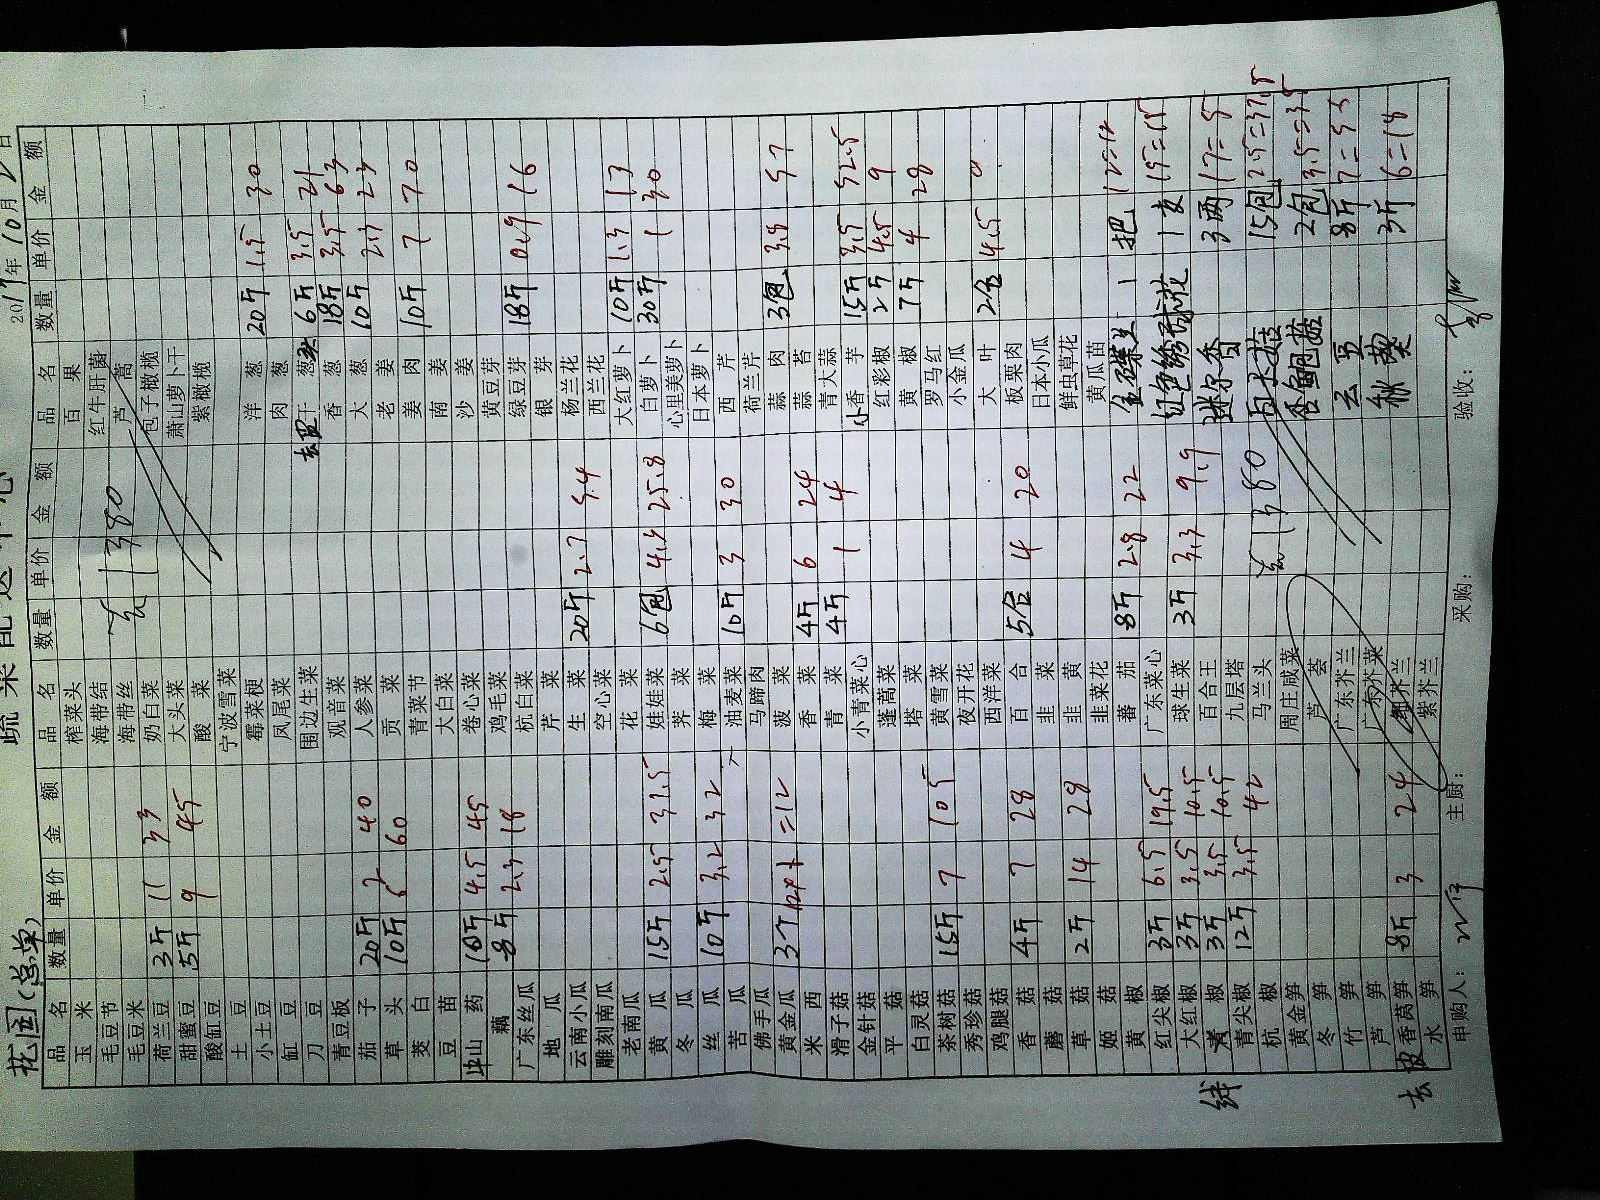 蔬菜配送中心
艺园(总单) 2019年10月2日
品名 数量 单价 金额 品名 数量 单价 金额 品名 数量 单价 金额
玉米 榨菜头 百果
毛豆节 海带结 红牛肝菌
毛豆米 海带丝 芦蒿
荷兰豆 3斤 11 33 奶白菜 包子橄榄
甜蜜豆 5斤 9 45 大头菜 萧山萝卜干
酸缸豆 酸菜 紫橄榄
土豆 宁波雪菜
小土豆 霉菜梗 洋葱 20斤 1.5 30
缸豆 凤尾菜 肉葱
刀豆 围边生菜 葱 6斤 3.5 21
青豆板 观音菜 香葱 18斤 3.5 63
茄子 20斤 2 40 人参菜 大葱 10斤 2.3 23
草头 10斤 6 60 贡菜 老姜
茭白 青菜节 姜肉 10斤 7 70
豆苗 大白菜 南姜
山药 10斤 4.5 45 卷心菜 沙姜
藕 8斤 2.3 18 鸡毛菜 黄豆芽
广东丝瓜 杭白菜 绿豆芽 18斤 0.9 16
地瓜 芹菜 银芽
云南小瓜 生菜 20斤 2.7 54 杨兰花
雕刻南瓜 空心菜 西兰花
老南瓜 花菜 大红萝卜 10斤 1.3 13
黄瓜 15斤 2.5 37.5 娃娃菜 6包 4.3 25.8 白萝卜 30斤 1 30
冬瓜 荠菜 心里美萝卜
丝瓜 10斤 3.2 32 梅菜 日本萝卜
苦瓜 油麦菜 10斤 3 30 西芹
佛手瓜 马蹄肉 荷兰芹
黄金瓜 3个 =12 菠菜 蒜肉 3包 3.8 57
米西 香菜 4斤 6 24 蒜苔
滑子菇 青菜 4斤 1 4 青大蒜
金针菇 小青菜心 小香芋 15斤 3.5 52.5
平菇 蓬蒿菜 红彩椒 2斤 4.5 9
白灵菇 塔菜 黄椒 7斤 4 28
茶树菇 15斤 7 105 黄雪菜 罗马红
秀珍菇 夜开花 小金瓜
鸡腿菇 西洋菜 大叶 2合 4.5 9
香菇 4斤 7 28 百合 5合 4 20 板栗肉
蘑菇 韭菜 日本小瓜
草菇 2斤 14 28 韭黄 鲜虫草花
姬菇 韭菜花 黄瓜苗
黄椒 蕃茄 8斤 2.8 22 1把 12=12
红尖椒 3斤 6.5 19.5 广东菜心 红色绣球花 1支 15=15
大红椒 3斤 3.5 10.5 球生菜 3斤 3.3 9.9 迷尔香 3两
线椒 3斤 3.5 10.5 百合王
青尖椒 12斤 3.5 42 九层塔 白木菇 15包 2.5=37.5
杭椒 马兰头 杏鲍菇 2包
黄金笋 周庄咸菜 云豆 8斤 7=56
冬笋 芦荟 秋葵 3斤 6=18
竹笋 广东芥兰
芦笋 广东芥菜
去皮香莴笋 8斤 3 24 细芥兰
水笋 紫芥兰
申购人: 主厨: 采购: 验收: